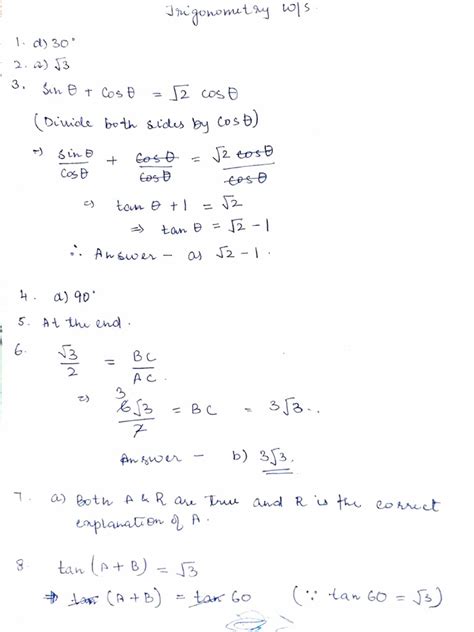 Trigonometry W/S.
1. d) 30°
2. a) √3
3. sin θ + cos θ = √2 cos θ
(Divide both sides by cos θ)
⇒ sin θ/cos θ + cos θ/cos θ = √2 cos θ/cos θ
⇒ tan θ + 1 = √2
⇒ tan θ = √2 - 1
∴ Answer - a) √2 - 1.
4. a) 90°
5. At the end.
6. √3/2 = BC/AC.
⇒ 3 6√3/2 = BC = 3√3..
Answer - b) 3√3.
7. a) Both A & R are True and R is the correct
explanation of A.
8. tan (A + B) = √3
⇒ tan (A + B) = tan 60 (∵ tan 60 = √3)